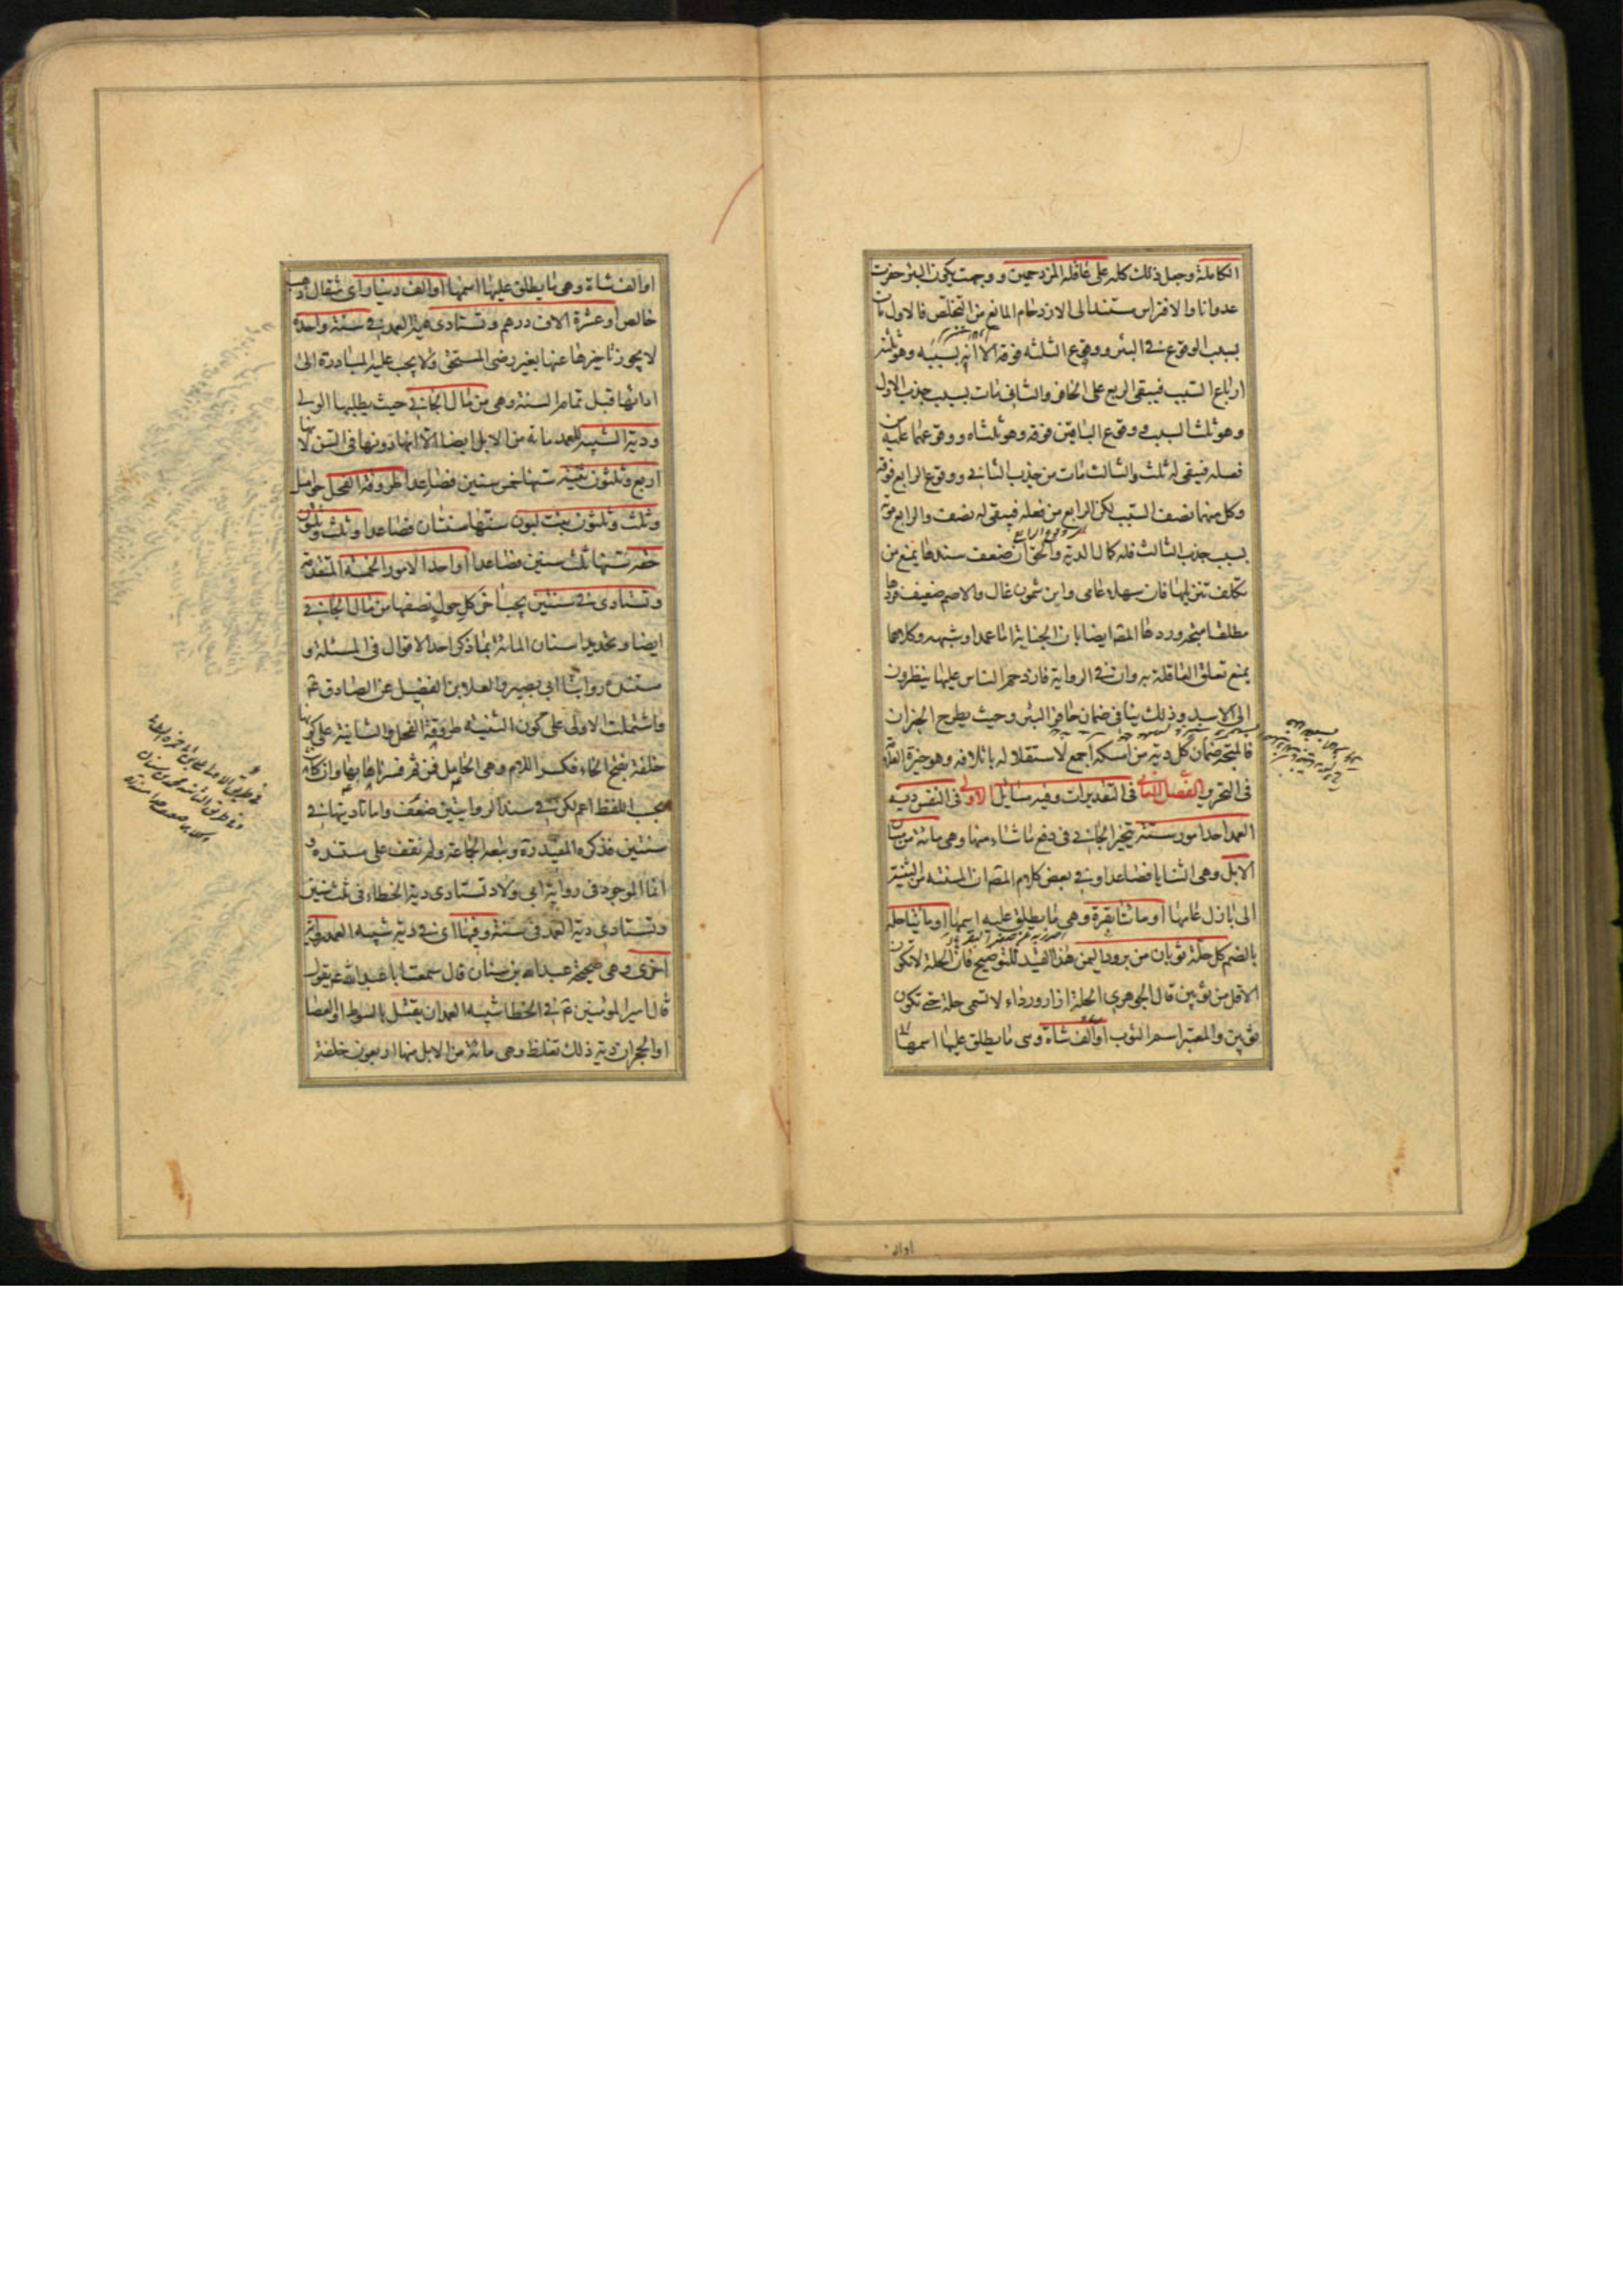 الكاملة وجعل ذلك كله على عاقلة المزدحمين ووجهت بكون البئر حفرت
عدوانا والافتراس مستندا الى الازدحام المانع من التخلص فالاول مات
بسبب الوقوع في البئر ووقوع الثلثة فوقه الا انه بسببه وهو ثلثة
ارباع السبب فيبقى الربع على الحافر والثاني مات بسبب جذب الاول
وهو ثلث السبب ووقوع الباقين فوقه وهو ثلثاه ووقوعهما عليه من
فعله فيبقى له ثلث والثالث مات من جذب الثاني ووقوع الرابع فوقه
وكل منهما نصف السبب لكن الرابع من فعله فيبقى له نصف والرابع موته
بسبب جذب الثالث فله كمال الدية والحق ان ضعف سندها يمنع من
تكلف تنزيلها فان سهلا عامي وابن شمون غال والاصم ضعيف فردها
مطلقا متجه وردها المصه ايضا بان الجناية اما عمد او شبهه وكلاهما
يمنع تعلق العاقلة به وان في الرواية فازدحم الناس عليها ينظرون
الى الاسد وذلك ينافي ضمان حافر البئر وحيث يطرح الخبران
فالمتجه ضمان كل دية من امسكه اجمع لاستقلاله باتلافه وهو خيرة العلامة
في التحرير الفصل الثاني في التقديرات وفيه مسايل الاولى في النفس دية
العمد احد امور ستة يتخير الجاني في دفع ما شاء منها وهي مائة من مسان
الابل وهي الثنايا فصاعدا وفي بعض كلام المصه ان المسنة من الثنية
الى بازل عامها او مائتا بقرة وهي ما يطلق عليه اسمها او مائتا حلة
بالضم كل حلة ثوبان من برود اليمن هذا القيد للتوضيح فان الحلة لا تكون
الاقل من ثوبين قال الجوهري الحلة ازار ورداء لا تسمى حلة حتى تكون
ثوبين والمعتبر اسم الثوب او الف شاة وهي ما يطلق عليها اسمها
او الف
او الف شاة وهي ما يطلق عليها اسمها او الف دينار اي مثقال ذهب
خالص او عشرة الاف درهم وتستادى دية العمد في سنة واحدة
لا يجوز تاخيرها عنها بغير رضى المستحق ولا يجب عليه المبادرة الى
ادائها قبل تمام السنة وهي من مال الجاني حيث يطلبها الولي
ودية الشبيه للعمد مائة من الابل ايضا الا انها دونها في السن لانها
اربع وثلثون ثنية سنها خمس سنين فصاعدا طروقة الفحل حوامل
وثلث وثلثون بنت لبون سنها سنتان فصاعدا وثلث وثلثون
حقة سنها ثلث سنين فصاعدا او احد الامور الخمسة المتقدمة
وتستادى في سنتين يجب اخر كل حول نصفها من مال الجاني
ايضا وتحديد اسنان المائة بما ذكر احد الاقوال في المسئلة و
مستنده روايتا ابي بصير والعلا بن الفضيل عن الصادق ع
واشتملت الاولى على كون الثنية طروقة الفحل والثانية على كونها
خلفة بفتح الخاء فكسر اللام وهي الحامل فمن ثم فسرناها بها وان كانت
بحسب اللفظ اعم لكن في سند الروايتين ضعف واما تاديتها في
سنتين فذكره المفيد ره وتبعه الجماعة ولم نقف على مستنده و
انما الموجود في رواية ابي ولاد تستادى دية الخطاء في ثلث سنين
وتستادى دية العمد في سنة وفيها اي في دية شبيه العمد رواية
اخرى وهي صحيحة عبد الله بن سنان قال سمعت ابا عبد الله ع يقول
قال امير المؤمنين ع في الخطا شبيه العمد ان يقتل بالسوط او العصا
او الحجر ان دية ذلك تغلظ وهي مائة من الابل منها اربعون خلفة